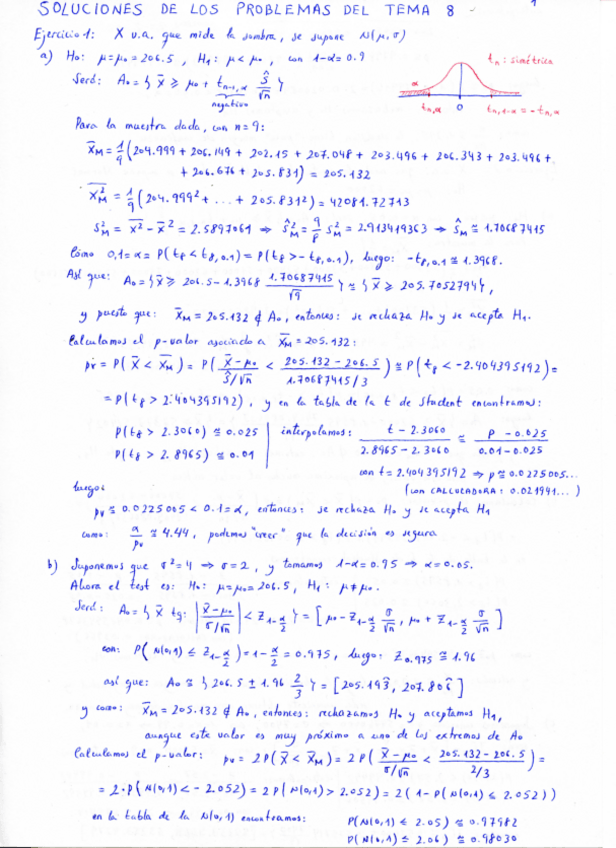 SOLUCIONES DE LOS PROBLEMAS DEL TEMA 8 1
Ejercicio 1: X v.a. que mide la sombra, se supone N(μ,σ)
a) H₀: μ=μ₀=206.5, H₁: μ<μ₀, con 1-α=0.9
tₙ: simétrica
Será: A₀={ x̄ ⩾ μ₀ + tₙ₋₁,α ŝ/√n }
negativo
α
tₙ,α 0 tₙ,₁₋α = -tₙ,α
Para la muestra dada, con n=9:
x̄_M = 1/9 (204.999 + 206.149 + 202.15 + 207.048 + 203.496 + 206.343 + 203.496 +
+ 206.676 + 205.831) = 205.132
x̄²_M = 1/9 (204.999² + ... + 205.831²) = 42081.72713
s²_M = x̄² - x̄² = 2.5897061 ⇒ ŝ²_M = 9/8 s²_M = 2.913419363 ⇒ ŝ_M ≅ 1.70687415
Como 0.1=α = P(t₈ < t₈,₀.₁) = P(t₈ > -t₈,₀.₁), luego: -t₈,₀.₁ ≅ 1.3968.
Así que: A₀={ x̄ ⩾ 206.5 - 1.3968 1.70687415/√9 } ≅ { x̄ ⩾ 205.7052794 },
y puesto que: x̄_M = 205.132 ∉ A₀, entonces: se rechaza H₀ y se acepta H₁.
Calculamos el p-valor asociado a x̄_M = 205.132:
pv = P(x̄ < x̄_M) = P( (x̄-μ₀)/(ŝ/√n) < (205.132-206.5)/(1.70687415/3) ) ≅ P(t₈ < -2.404395192) =
= P(t₈ > 2.404395192), y en la tabla de la t de Student encontramos:
P(t₈ > 2.3060) ≅ 0.025 | interpolamos: (t - 2.3060)/(2.8965 - 2.3060) ≅ (p - 0.025)/(0.01 - 0.025)
P(t₈ > 2.8965) ≅ 0.01
con t=2.404395192 ⇒ p ≅ 0.0225005...
luego: (con CALCULADORA: 0.021941...)
pv ≅ 0.0225005 < 0.1=α, entonces: se rechaza H₀ y se acepta H₁
como: α/pv ≅ 4.44, podemos "creer" que la decisión es segura
b) Suponemos que σ²=4 ⇒ σ=2, y tomamos 1-α=0.95 ⇒ α=0.05.
Ahora el test es: H₀: μ=μ₀=206.5, H₁: μ≠μ₀.
Será: A₀={ x̄ tq: |(x̄-μ₀)/(σ/√n)| < z₁₋α/₂ } = [ μ₀ - z₁₋α/₂ σ/√n, μ₀ + z₁₋α/₂ σ/√n ]
con: P( N(0,1) ≤ z₁₋α/₂ ) = 1 - α/2 = 0.975, luego: z₀.₉₇₅ ≅ 1.96
así que: A₀ ≅ { 206.5 ± 1.96 2/3 } = [ 205.193̂, 207.806̂ ]
y como: x̄_M = 205.132 ∉ A₀, entonces: rechazamos H₀ y aceptamos H₁,
aunque este valor es muy próximo a uno de los extremos de A₀
Calculamos el p-valor: pv = 2P(x̄ < x̄_M) = 2P( (x̄-μ₀)/(σ/√n) < (205.132-206.5)/(2/3) ) =
= 2·P( N(0,1) < -2.052) = 2P( N(0,1) > 2.052) = 2( 1 - P( N(0,1) ≤ 2.052))
en la tabla de la N(0,1) encontramos: P(N(0,1) ≤ 2.05) ≅ 0.97982
P(N(0,1) ≤ 2.06) ≅ 0.98030